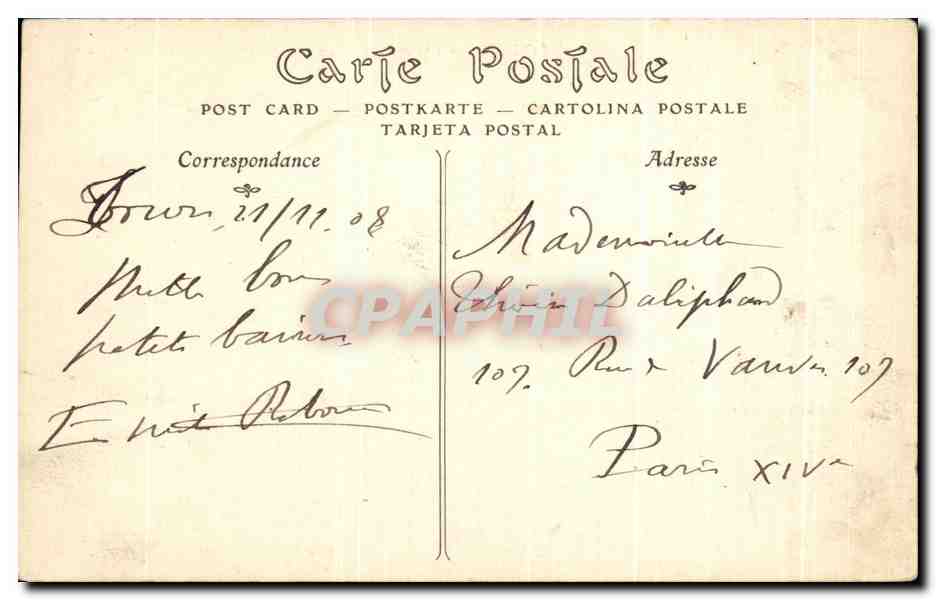 Carte Postale
POST CARD — POSTKARTE — CARTOLINA POSTALE
TARJETA POSTAL
Correspondance
Adresse
21/11 08
mille bons
petits baisers
Mademoiselle
Daliphard
107. Rue de Vanves 107
Paris XIVe
CPAPHIL